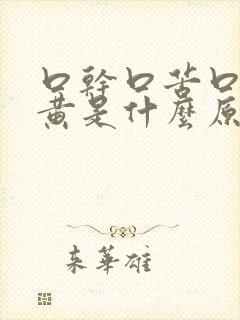 口幹口苦口
黃是什麼原
來華雄